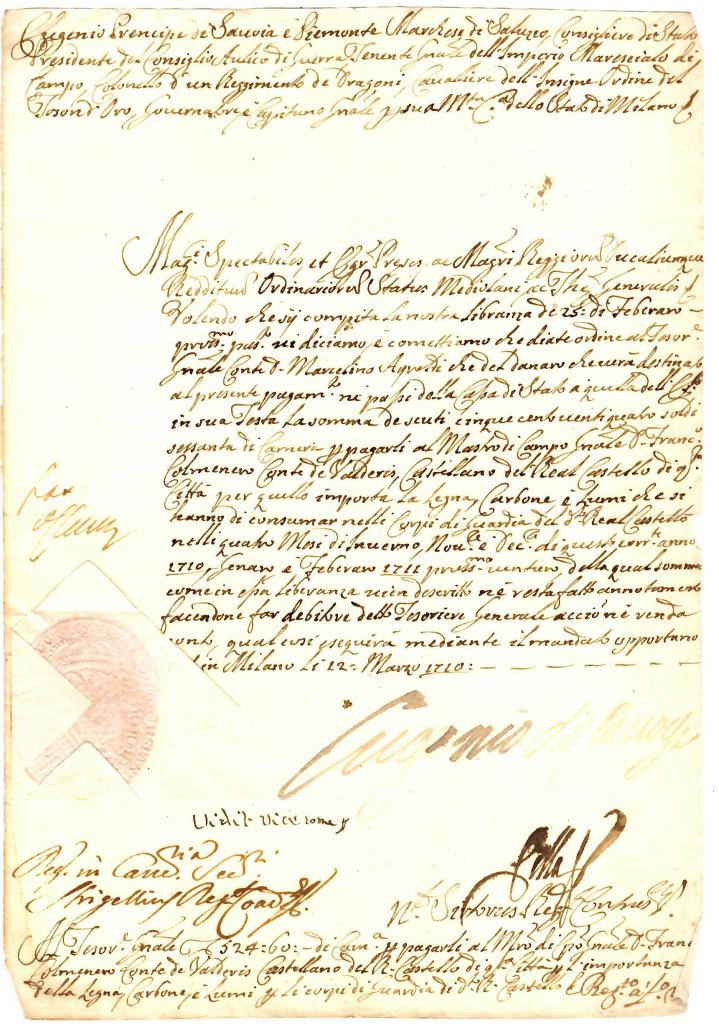 Eugenio Prencipe di Savoia e Piemonte Marchese di Saluzzo, Consigliere di Stato
Presidente del Consiglio Aulico di Guerra Tenente Gnale dell'Imperio Marescialo di
Campo, Colonello d'un Reggimento de Dragoni, Cavaliere dell'Insigne Ordine del
Toson d'Oro, Governatore e Capitano Gnale p sua Mtà Ca dello Stato di Milano
Magci Spectabiles, et Egr Preses ac Magri Reggiorum Ducaliumque
Redditum Ordinariorum Status Mediolani, ac Thes Generalis
Volendo che sij compita la nostra Libranza de 25: di Febraro
prossmo passo vi diciamo, e comettiamo che diate ordine al Tesore
Gnale Conte D. Marcelino Ayroldi che del danaro che verà destinato
al presente pagamto ne passi della Cassa di Stato a quella dell'
in sua Testa la somma de scuti cinque cento venti quatro soldi
sessanta di Camera p pagarli al Mastro di Campo Gnale D. Franco
Colmenero Conte de Valderis, Castellano del Real Castello di qta
Città per quello importa la Legna, Carbone e Lumi che si
hanno di consumar nelli Corpi di Guardia del do Real Castello
nelli quatro Mesi di Inverno, Nove e Dece di questo corrte anno
1710, Genaro e Febraro 1711 prossmo venturo, della qual somma
come in essa liberanza vien descritto ne resta fatto annotamento
facendone far debitore detto Tesoriere Generale acciò ne renda
conto, qual cosi eseguirà mediante il mandato opportuno
in Milano li 12: Marzo 1710:
Eugenio di Savoye
Vidit
Reg. in Cancria Secri
Reg Coad
Al Tesore Gnale 524:60:- di Cama p pagarli al Mro di Cpo Gnale D. Franco
Colmenero Conte de Valderis Castellano del R. Castello di qta Città p l'importanza
della Legna, Carbone, e Lumi p li corpi di Guardia di do R. Castello